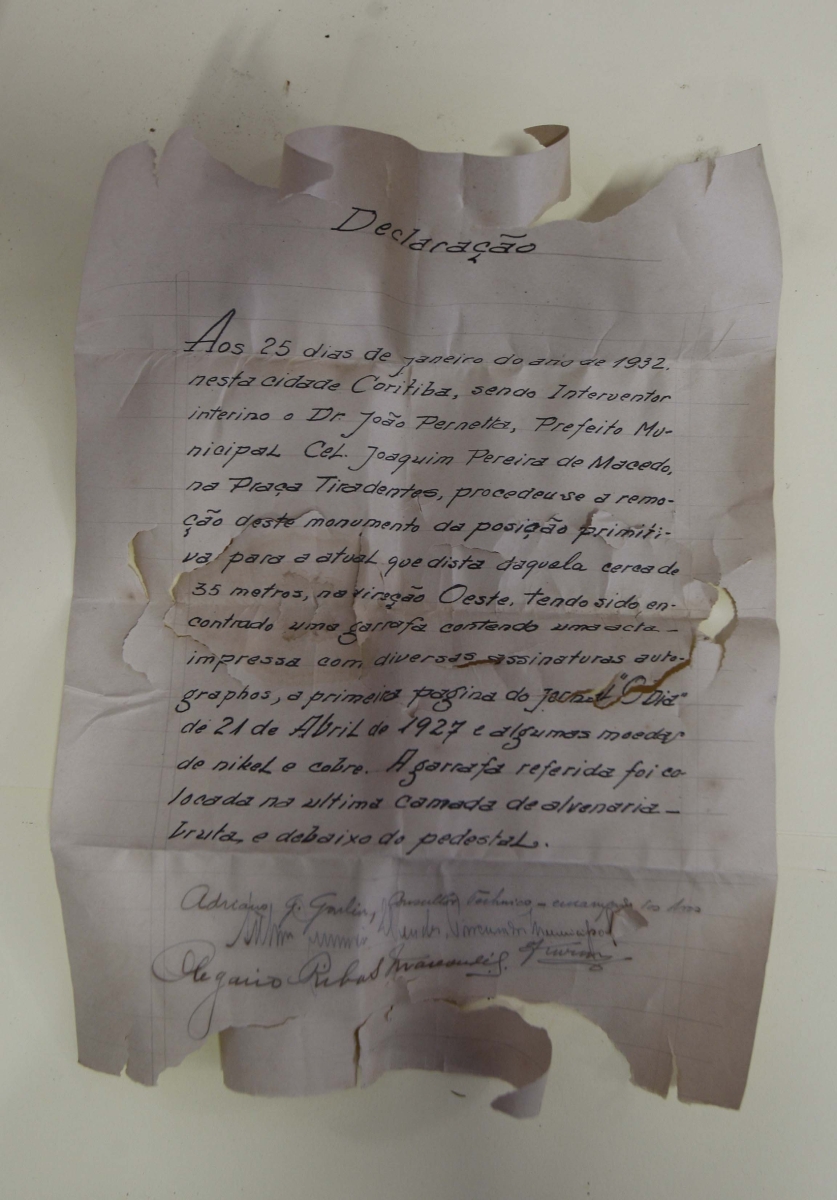 Declaração
Aos 25 dias de janeiro do ano de 1932.
nesta cidade Coritiba, sendo Interventor
interino o Dr. João Pernetta, Prefeito Mu-
nicipal Cel. Joaquim Pereira de Macedo,
na Praça Tiradentes, procedeu-se a remo-
ção deste monumento da posição primiti-
va para a atual que dista daquela cerca de
35 metros, na direção Oeste. Tendo sido en-
contrado uma garrafa contendo uma acta –
impressa com diversas assinaturas auto-
graphos, a primeira pagina do jornal "O Dia"
de 21 de Abril de 1927 e algumas moedas
de nikel e cobre. A garrafa referida foi co-
locada na ultima camada de alvenaria –
bruta, e debaixo do pedestal.
Adriano G. Consultor Technico
Municipal
Olegario Ribas